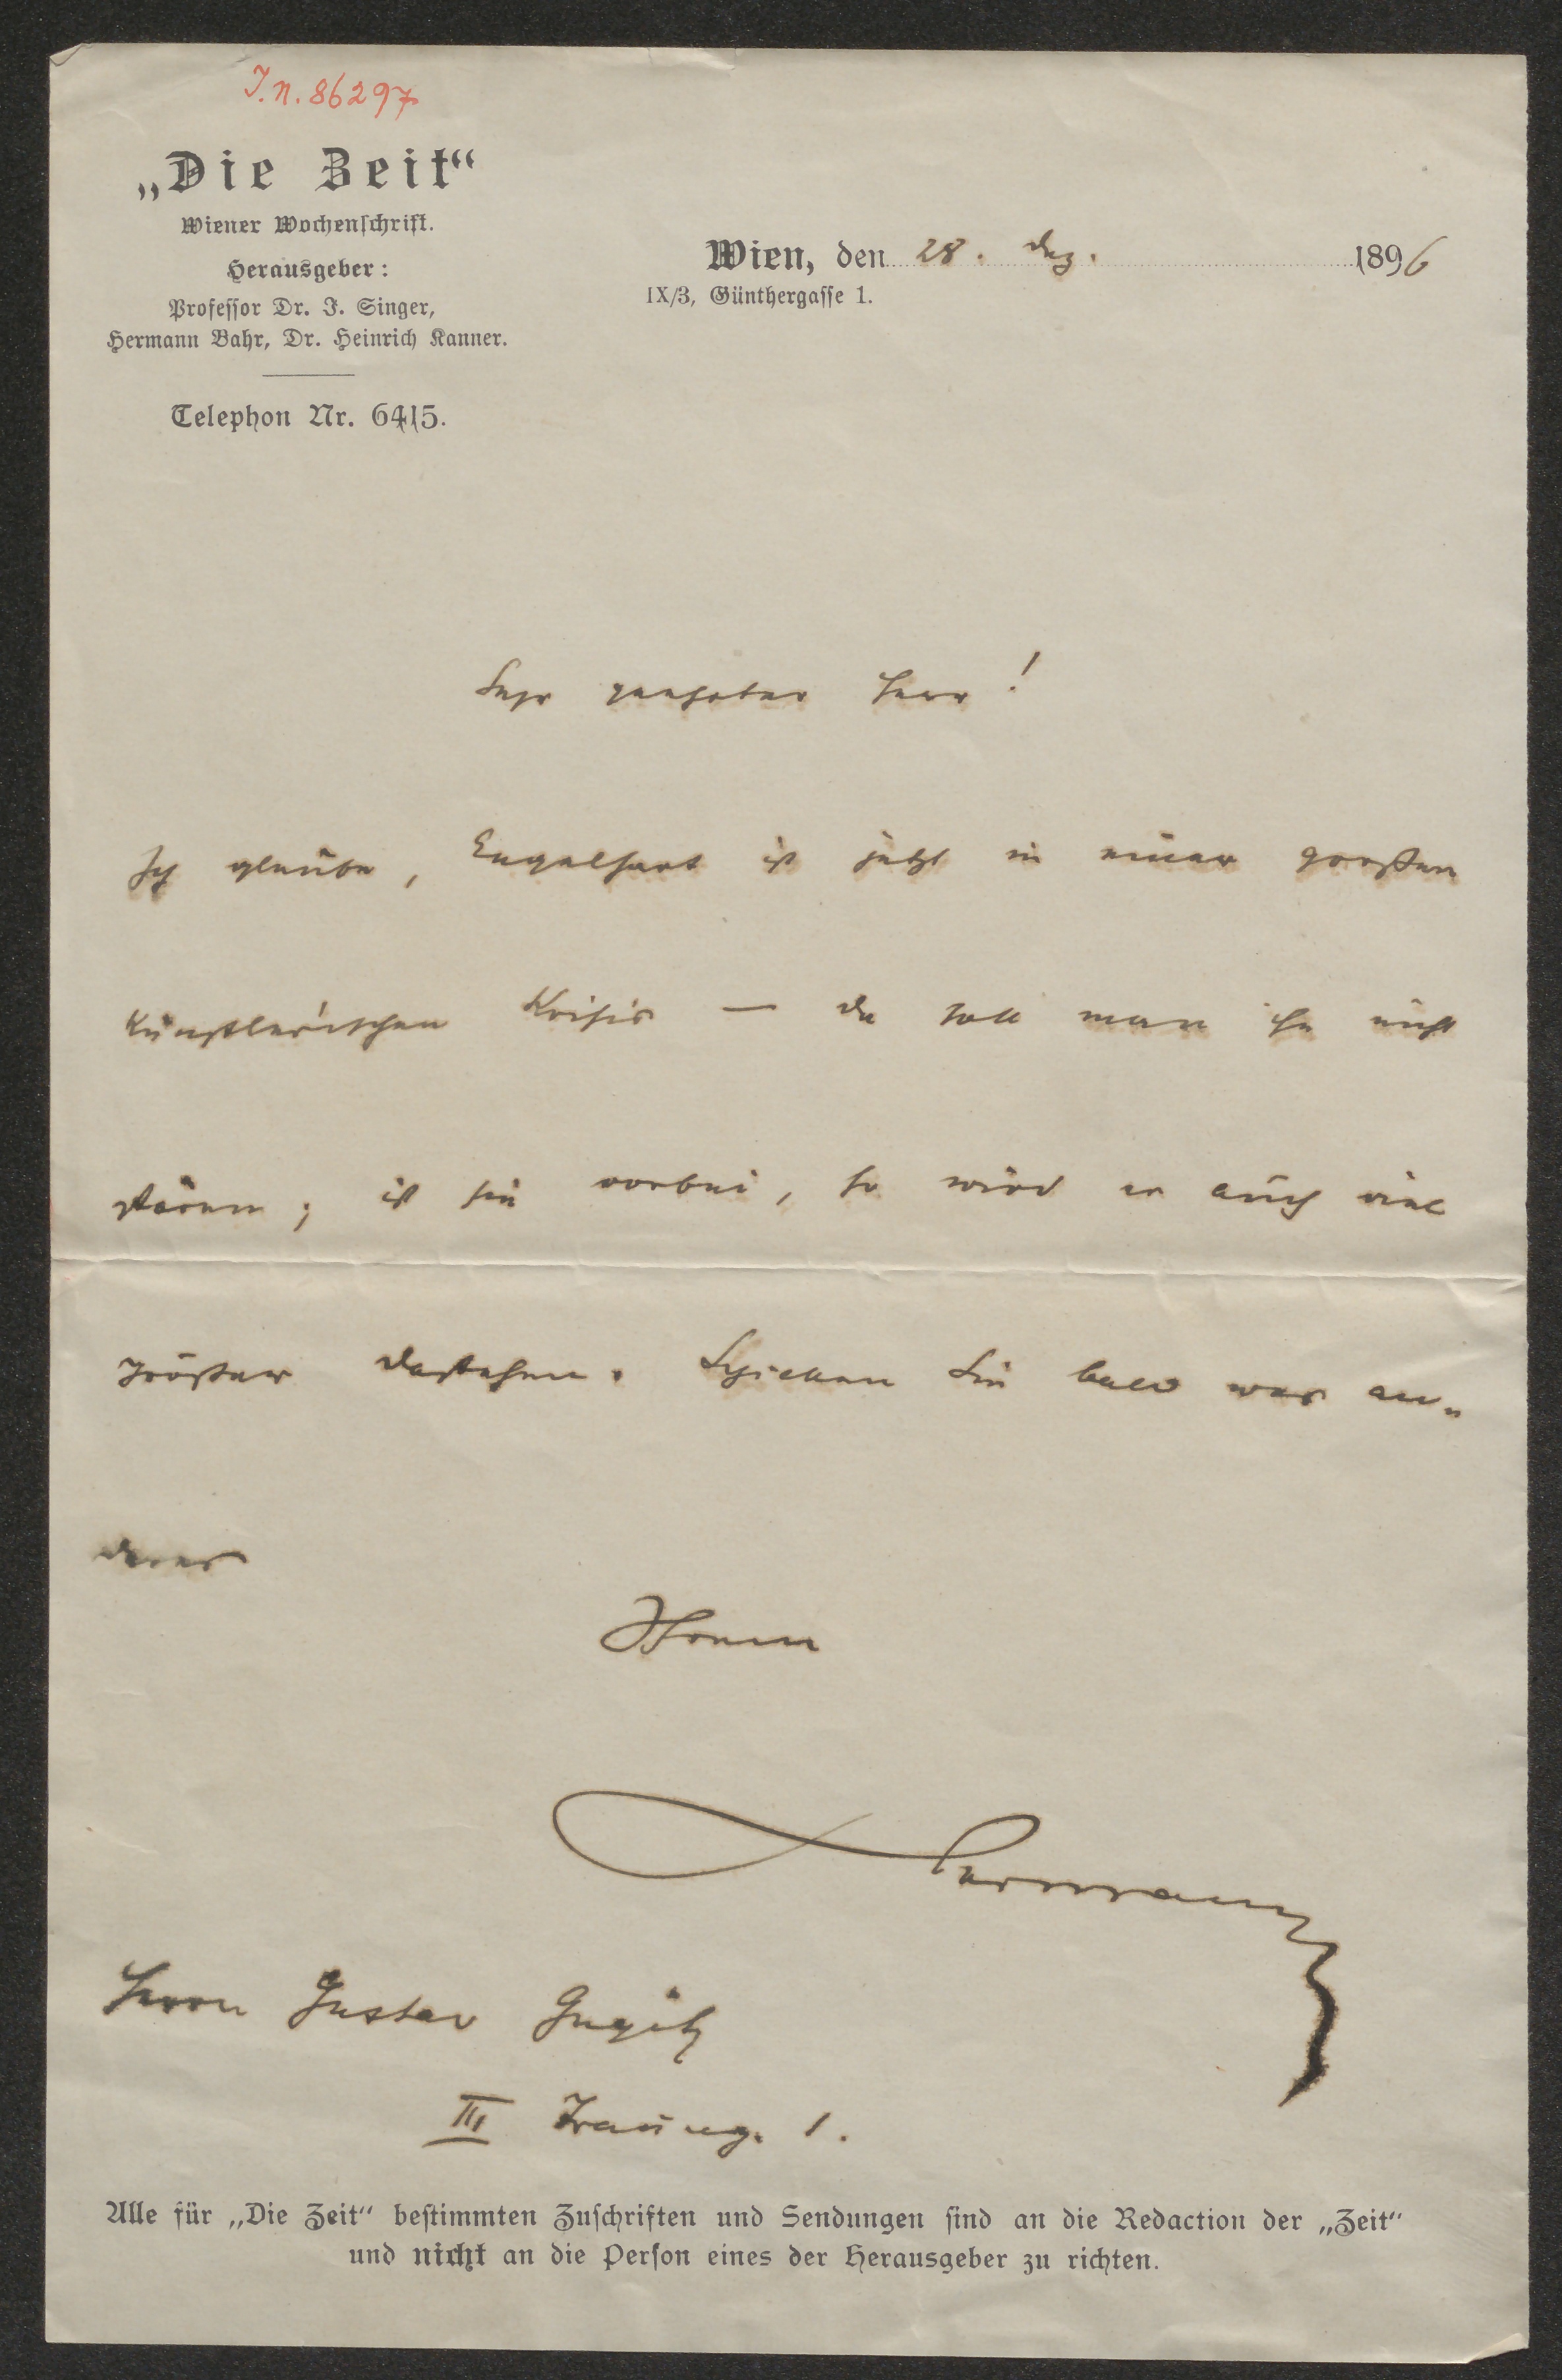 J.N. 86297
„Die Zeit“
Wiener Wochenschrift.
Herausgeber:
Professor Dr. J. Singer,
Hermann Bahr, Dr. Heinrich Kanner.
Telephon Nr. 6415.
Wien, den 28. Dez. 1896
IX/3, Günthergasse 1.
Sehr geehrter Herr!
Ich glaube, Engelhart ist jetzt in einer großen
künstlerischen Krisis — da soll man ihn nicht
stören; ist sie vorbei, so wird er auch viel
größer dastehen. Schicken Sie bald was an-
deres
Ihrem
Hermann
Herrn Gustav Gugitz
III Traung. 1.
Alle für „Die Zeit“ bestimmten Zuschriften und Sendungen sind an die Redaction der „Zeit“
und nicht an die Person eines der Herausgeber zu richten.